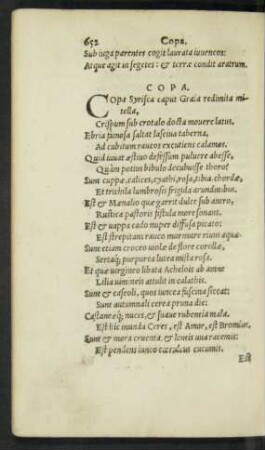 652 Copa.
Sub iuga parentes cogit laurata iuuencos:
Atque agit in segetes: & terræ condit aratrum.
COPA.
COpa Syrisca caput Graia redimita mi-
tella,
Crispum sub crotalo docta mouere latus,
Ebria famosa saltat lasciua taberna,
Ad cubitum raucos excutiens calamos.
Quid iuuat æstiuo defessum puluere abesse,
Quàm potius bibulo decubuisse thoro?
Sunt cuppæ, calices, cyathi, rosa, tibia, chordæ,
Et trichila umbrosis frigida arundinibus.
Est & Mænalio quæ garrit dulce sub antro,
Rustica pastoris fistula more sonans.
Est & uappa cado nuper diffusa picato:
Est strepitans rauco murmure riuus aquæ.
Sunt etiam croceo uiolæ de flore corollæ,
Sertaq; purpurea lutea mista rosa.
Et quæ uirgineo libata Achelois ab amne
Lilia uimineis attulit in calathis.
Sunt & caseoli, quos iuncea fiscina siccat:
Sunt autumnali cerea pruna die:
Castaneæq; nuces, & suaue rubentia mala.
Est hic munda Ceres, est Amor, est Bromius.
Sunt & mora cruenta, & lentis uua racemis:
Est pendens iunco cæruleus cucumis.
Est